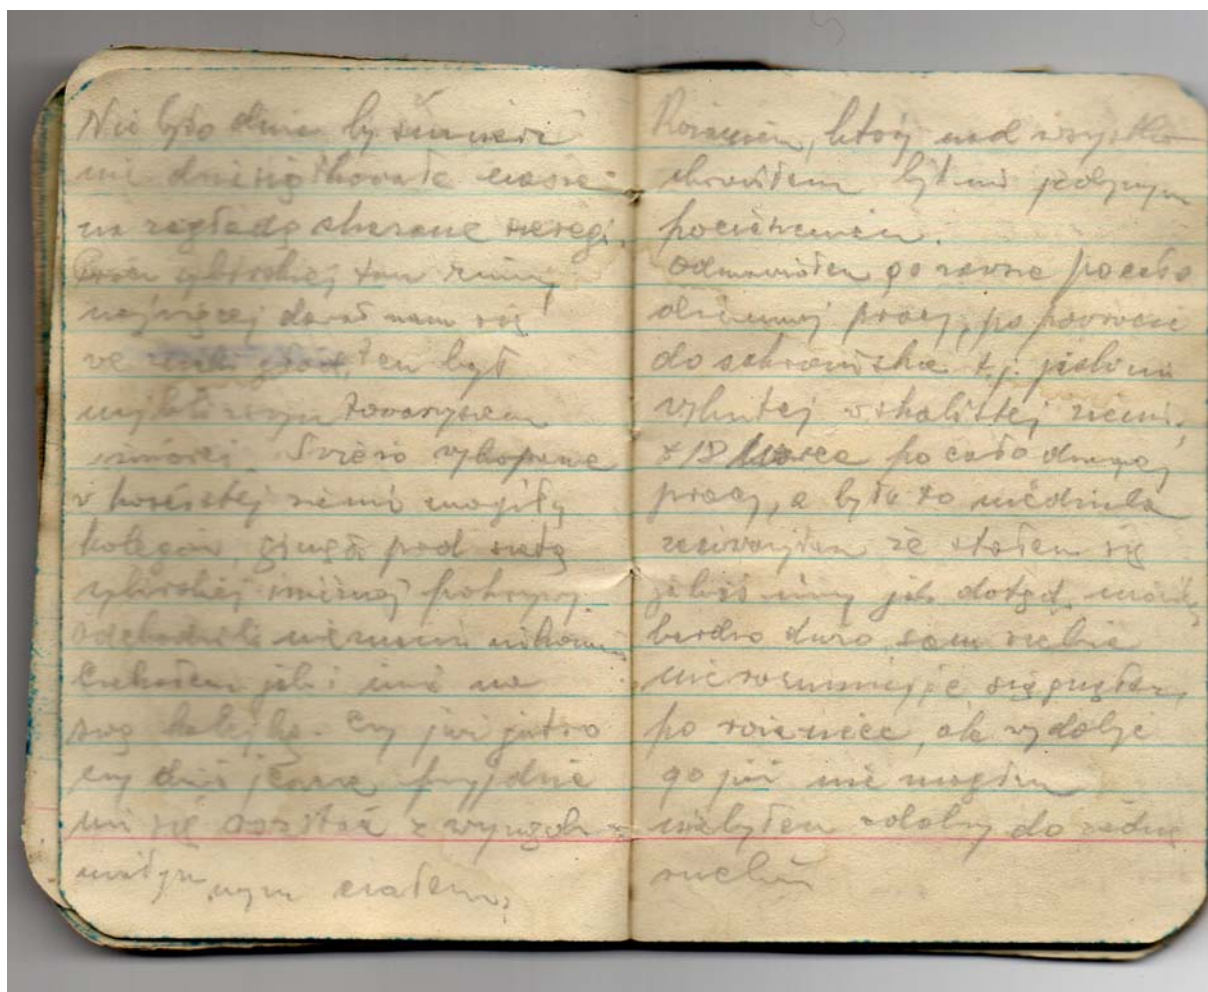 Nie było dnia by śmierć
nie dziesiątkowała naszej
na zagładę skazane szeregi.
sybirskiej tam zimy
najwięcej dawał nam się
we ten był
najbliższym towarzyszem
śmierci. Świeżo wykopane
w kamienistej ziemi mogiły
kolegów, giną pod
sybirskiej śnieżnej pokrywy
odchodzili nieznani nikomu
Czekałem jak i inni na
swą kolejkę. Czy już jutro
czy dziś jeszcze przyjdzie
mi się rozstać z
nym ciałem,
Różaniec, który nad wszystko
chroniłem był mi jedynym
pocieszeniem.
Odmawiałem go zawsze po cało
dziennej pracy, po powrocie
do schroniska t.j. jaskini
wykutej w skalistej ziemi,
18 marca po całodziennej
pracy, a była to niedziela
zauważyłem że stałem się
jakiś inny jak dotąd,
bardzo dużo, sam siebie
nie rozumiejąc sięgnąłem
po różaniec, ale wydobyć
go już nie mogłem
niebyłem zdolny do żadnego
ruchu